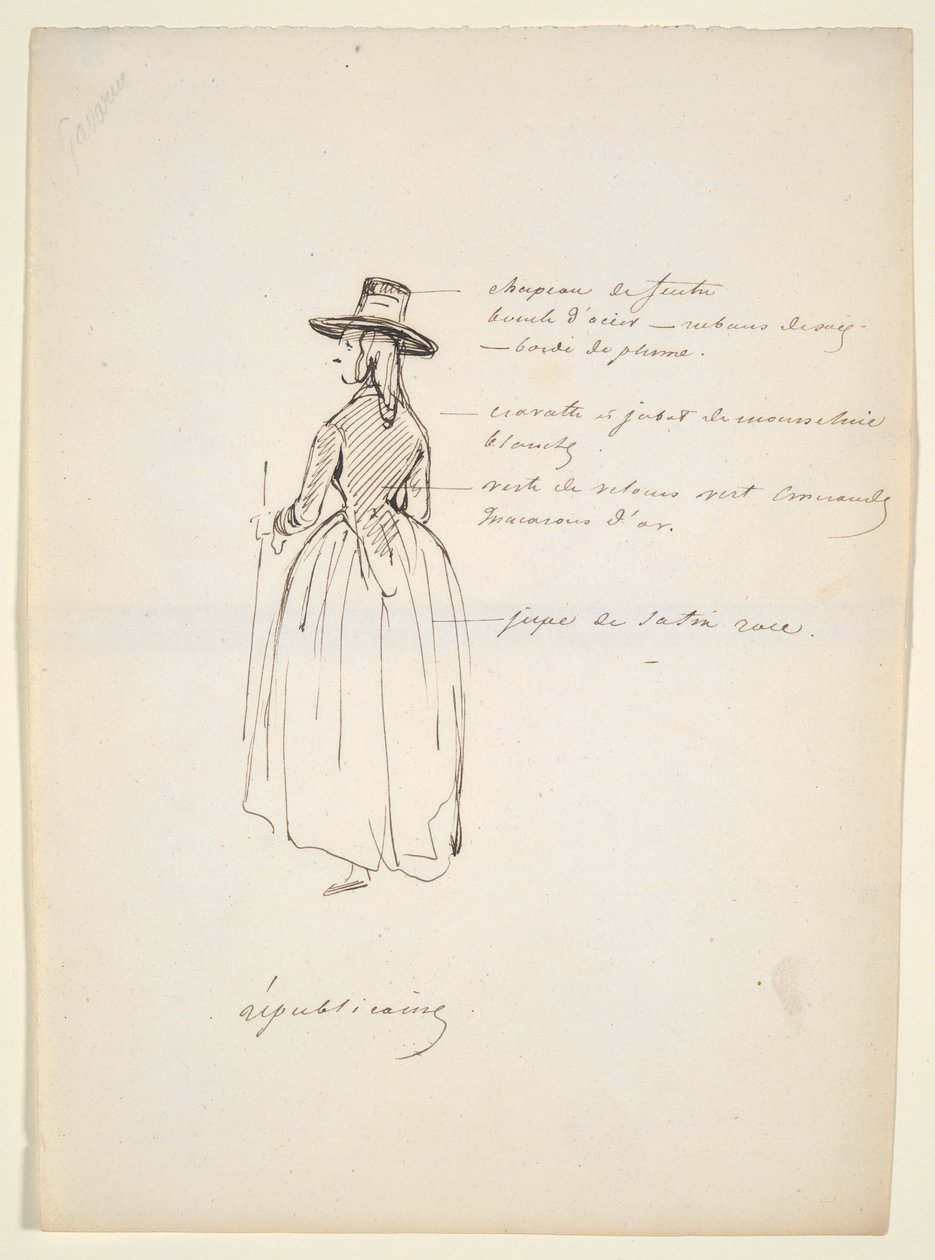 Gavarni
chapeau de feutre
boucle d'acier — rubans de soie —
— bordé de plume.
cravatte et jabot de mousseline
blanche
veste de velours vert émeraude
macarons d'or.
jupe de satin rose.
républicaine